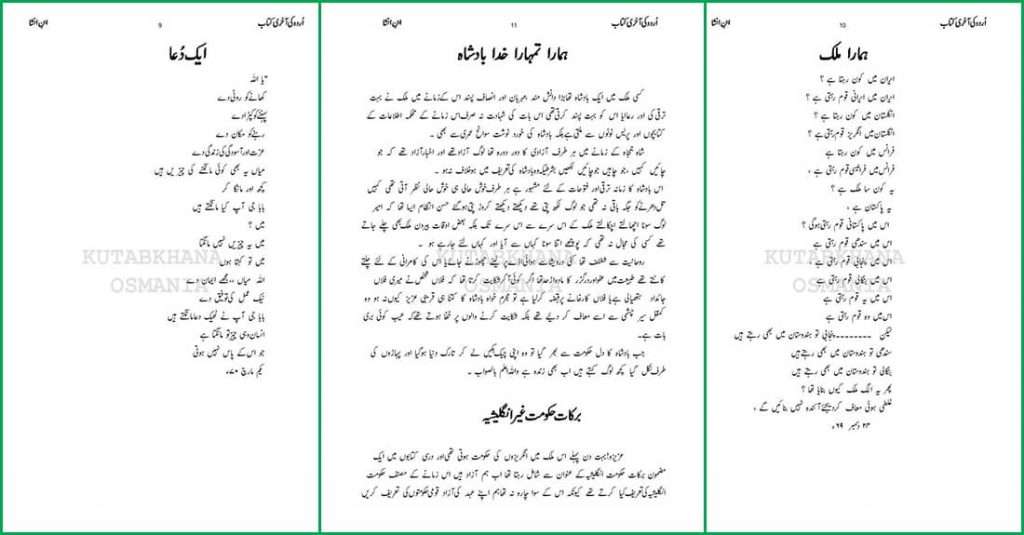 اُردو کی آخری کتاب
10
ابنِ انشا
ہمارا ملک
ایران میں کون رہتا ہے ؟
ایران میں ایرانی قوم رہتی ہے ؟
انگلستان میں کون رہتا ہے ؟
انگلستان میں انگریز قوم رہتی ہے ؟
فرانس میں کون رہتا ہے
فرانس میں فرانسیسی قوم رہتی ہے ،
یہ کون سا ملک ہے ؟
یہ پاکستان ہے ،
اس میں پاکستانی قوم رہتی ہوگی ؟
اس میں سندھی قوم رہتی ہے
اس میں پنجابی قوم رہتی ہے ،
اس میں بنگالی قوم رہتی ہے
اس میں یہ قوم رہتی ہے
اس میں وہ قوم رہتی ہے
لیکن ---------پنجابی تو ہندوستان میں بھی رہتے ہیں
سندھی تو ہندوستان میں بھی رہتے ہیں
بنگالی تو ہندوستان میں بھی رہتے ہیں
پھر یہ الگ ملک کیوں بنایا تھا ؟
غلطی ہوئی معاف کر دیجئے آئندہ نہیں بنائیں گے ،
۲۳ دسمبر ۶۹ء
KUTABKHANA
OSMANIA
اُردو کی آخری کتاب
11
ابنِ انشا
ہمارا تمہارا خدا بادشاہ
کسی ملک میں ایک بادشاہ تھا بڑا دانش مند ،مہربان اور انصاف پسند اس کے زمانے میں ملک نے بہت
ترقی کی اور رعایا اس کو بہت پسند کرتی تھی اس بات کی شہادت نہ صرف اس زمانے کے محکمہ اطلاعات کے
کتابچوں اور پریس نوٹوں سے ملتی ہے بلکہ بادشاہ کی خود نوشت سوانح عمری سے بھی ۔
شاہ جمجاہ کے زمانے میں ہر طرف آزادی کا دور دورہ تھا لوگ آزاد تھے اور اخبار آزاد تھے کہ جو
چاہیں کہیں ،جو چاہیں لکھیں بشرطیکہ وہ بادشاہ کی تعریف میں ہو خلاف نہ ہو ۔
اس بادشاہ کا زمانہ ترقی اور فتوحات کے لئے مشہور ہے ہر طرف خوش حالی ہی خوش حالی نظر آتی تھی کہیں
تل دھرنے کو جگہ باقی نہ تھی جو لوگ لکھ پتی تھے دیکھتے دیکھتے کروڑ پتی ہو گئے حسن انتظام ایسا تھا کہ امیر
لوگ سونا اچھالتے اچھالتے ملک کے اس سرے سے اس سرے تک بلکہ بعض اوقات بیرون ملک بھی چلے جاتے
تھے کسی کی مجال نہ تھی کہ پوچھے اتنا سونا کہاں سے آیا اور کہاں لئے جا رہے ہو ۔
روحانیت سے شغف تھا کئی درویش اسے ہوائی اڈے پر لینے چھوڑنے جاتے یا اس کی کامرانی کے لئے چلے
کاٹتے تھے طبیعت میں عفو اور درگزر کا مادہ از حد تھا اگر کوئی آکر شکایت کرتا تھا کہ فلاں شخص نے میری فلاں
جائداد ہتھیالی ہے یا فلاں کارخانے پر قبضہ کر لیا ہے تو مجرم خواہ بادشاہ کا کتنا ہی قریبی عزیز کیوں نہ ہو وہ
کمال سیر چشمی سے اسے معاف کر دیتے تھے بلکہ شکایت کرنے والوں پر خفا ہوتے تھے کہ عیب جوئی بری
بات ہے۔
جب بادشاہ کا دل حکومت سے بھر گیا تو وہ اپنی چیک بکیں لے کر تارک دنیا ہو گیا اور پہاڑوں کی
طرف نکل گیا کچھ لوگ کہتے ہیں اب بھی زندہ ہے واللہ اعلم بالصواب ۔
برکات حکومت غیر انگلیشیہ
عزیزو!بہت دن پہلے اس ملک میں انگریزوں کی حکومت ہوتی تھی اور درسی کتابوں میں ایک
مضمون برکات حکومت انگلیشیہ کے عنوان سے شامل رہتا تھا اب ہم آزاد ہیں اس زمانے کے مصنف حکومت
انگلیشیہ کی تعریف کیا کرتے تھے کیونکہ اس کے سوا چارہ نہ تھا ہم اپنے عہد کی آزاد قومی حکومتوں کی تعریف کریں
KUTABKHANA
OSMANIA
اُردو کی آخری کتاب
9
ابنِ انشا
ایک دُعا
"یا اللہ
کھانے کو روٹی دے
پہننے کو کپڑا دے
رہنے کو مکان دے
عزت اور آسودگی کی زندگی دے
میاں یہ بھی کوئی مانگنے کی چیزیں ہیں
کچھ اور مانگا کر
بابا جی آپ کیا مانگتے ہیں
میں ؟
میں یہ چیزیں نہیں مانگتا
میں تو کہتا ہوں
اللہ میاں ،،مجھے ایمان دے
نیک عمل کی توفیق دے
بابا جی آپ نے ٹھیک دعا مانگتے ہیں
انسان وہی چیز تو مانگتا ہے
جو اس کے پاس نہیں ہوتی
یکم مارچ ۷۰ء
KUTABKHANA
OSMANIA